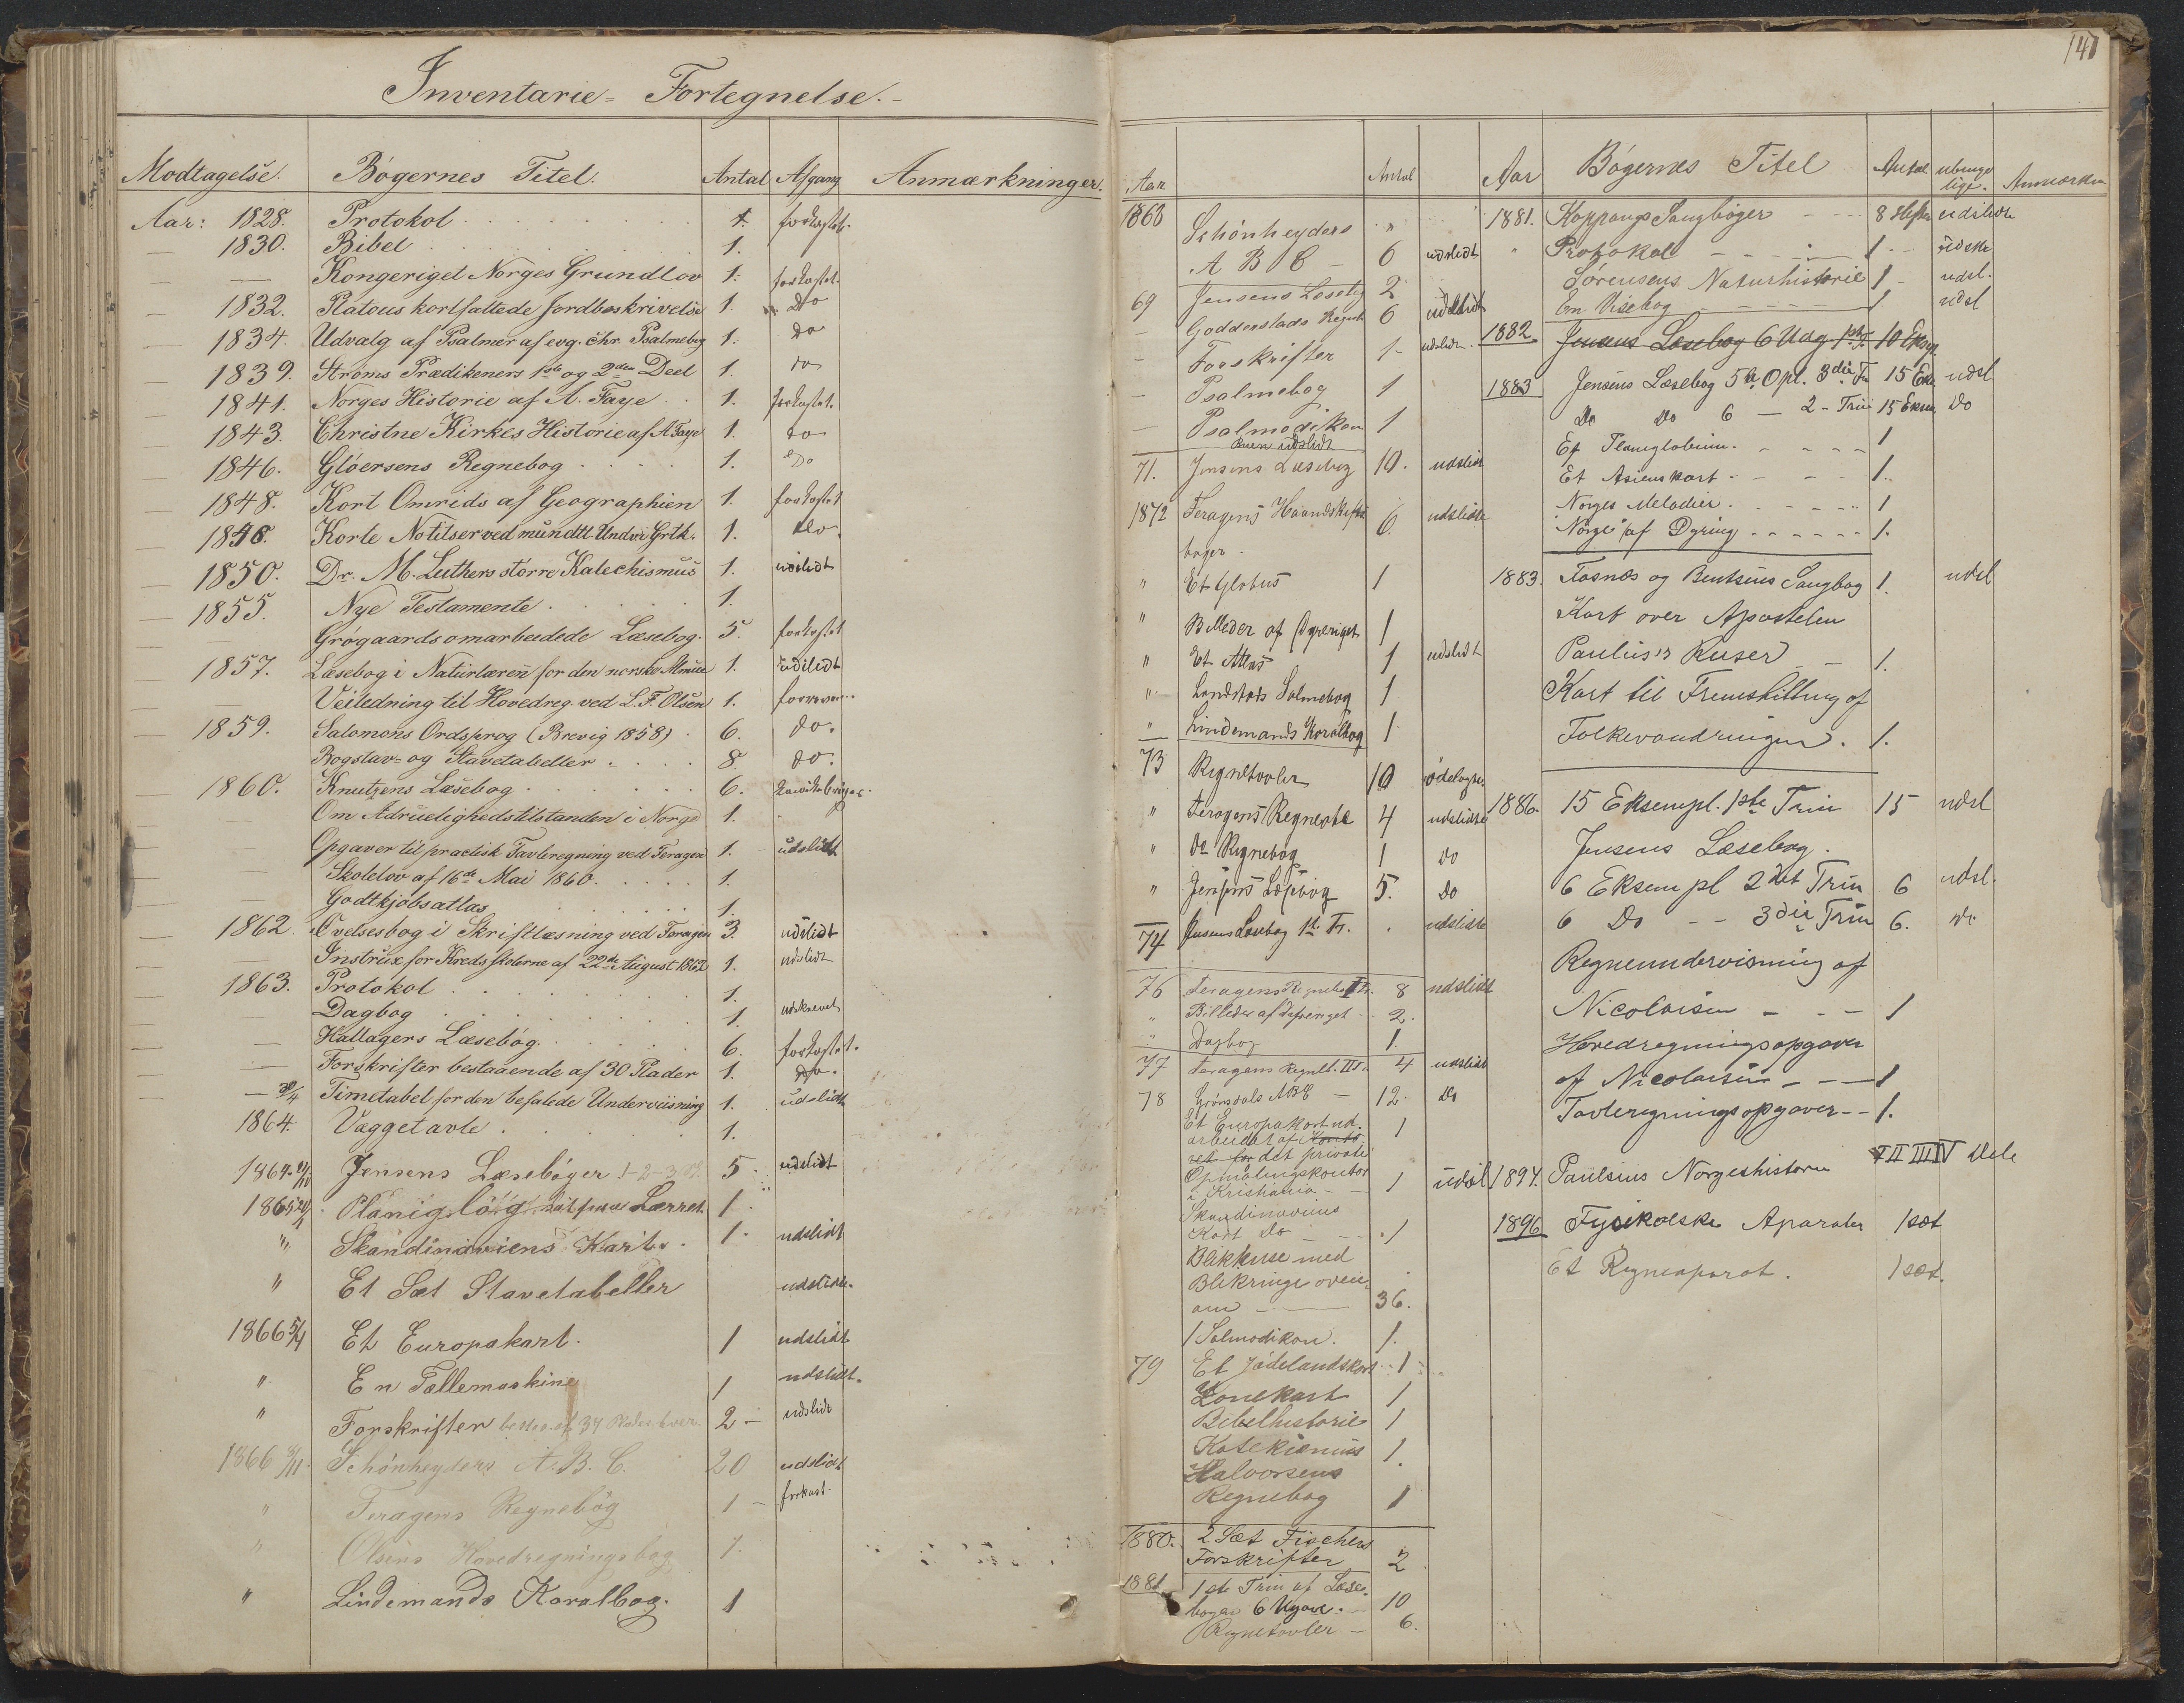 Inventarie-Fortegnelse.
Modtagelse. Bøgernes Titel. Antal Afgang Anmærkninger.
Aar: 1828. Protokol 1. forkastet.
1830. Bibel 1.
— Kongeriget Norges Grundlov 1. forkastet.
1832. Platous kortfattede Jordbeskrivelse 1. do
1834. Udvalg af Psalmer af evg. chr. Psalmebog 1. do
1839. Strøms Prædikeners 1ste og 2den Deel 1. do
1841. Norges Historie af A. Faye 1. forkastet.
1843. Christne Kirkes Historie af A Faye 1. do
1846. Gløersens Regnebog 1. Do
1848. Kort Omrids af Geographien 1. forkastet
1848. Korte Notitser ved mündtl. Undvi Grtk. 1. do.
1850. Dr. M. Luthers større Katechismus 1. udslidt
1855. Nye Testamente 1.
— Grøgaards omarbeidede Læsebog. 5. forkastet
1857. Læsebog i Naturlæren for den norske Almue 1. udslidt
— Veiledning til Hovedreg. ved L. F. Olsen 1. 
1859. Salomons Ordsprog (Brevig 1858) 6. do.
Bogstav- og Stavetabeller 8. do.
1860. Knutzens Læsebog 6.
— Om Ædruelighedstilstanden i Norge 1.
— Opgaver til practisk Tavleregning ved Feragen 1. udslidt
— Skolelov af 16de Mai 1860. 1.
— Godtkjøbsatlas 1.
1862. Øvelsesbog i Skriftlæsning ved Feragen 3. udslidt
— Instrux for Kredsskolerne af 22de August 1862 1. udslidt
1863. Protokol 1.
— Dagbog 1. udskrevet
— Hallagers Læsebog. 6. forkastet.
— Forskrifter bestaaende af 30 Plader 1. do.
— 30/4 Timetabel for den befalede Underviisning 1. udslidt
1864. Væggetavle 1.
1864 Jensens Læsebøger 1-2-3 5 udslidt
1865 Lærret. 1
" Skandinaviens Kart. 1. udslidt
" Et Sæt Stavetabeller udslidt.
1866 5/4 Et Europakart. 1 udslidt
" En Tællemaskine 1 udslidt.
" Forskrifter 2 – udslidt
1866 Schønheyders A.B.C. 20 udslidt
" Feragens Regnebog 1 – forkast.
" Olsens Hovedregningsbog 1.
" Lindemands Koralbog. 1
141
Aar Antal
1868 Schønheyders "
A B C – 6 udslidt
69 Jensens Læsebog 2
– Goddenstads Regneb 6 udslidt
– Forskrifter 1 – udslidt.
– Psalmebog 1
– Psalmodikon 1
Buen udslidt
71. Jensens Læsebog 10. udslidt
1872 Feragens Haandskrifts 6. udslidte
bøger.
" Et Globus 1
" Billeder af Dyreriget 1
" Et Atlas 1 udslidt
" Landstads Salmebog 1
" Lindemands Koralbog 1
73 Regnetavler 10 ødelagte
" Feragens Regnebog 4 udslidte
" Do Regnebog 1 do
" Jensens Læsebog 5. Do
74 Jensens Læsebog 1ste Tr. udslidte
76 Feragens Regnebog I Tr. 8 udslidt
" Billeder af Dyreriget 2.
" Dagbog 1.
77 Feragens Regneb. II Tr. 4 udslidt
78 Grønsdals ABC – 12. Do
Et Europakart ud-
arbeidet af 1
det private
Opmålingskontor
i Kristiania – 1 udsl
Skandinaviens
Kart Do – 1
Blikkuse med
Blikringe oven
om 36.
1 Salmodikon. 1.
79 Et Jødelandskart 1
Zonekart 1
Bibelhistorie 1
Katekismus 1.
Halvorsens
Regnebog 1
1880. 2 Sæt Fischers
Forskrifter 2
1881 1ste Trin af Læse-
bogen 6 Udgave. – 10
Regnetavler – 6.
Aar Bøgernes Titel Antal ubruge
lige. Anmærkn
1881. Koppangs Sangbøger 8 Hefter udslidte
" Protokol 1 – udskr
Sørensens Naturhistorie 1 udsl.
En Visebog 1 udsl
1882. Jensens Læsebog 6 Udg 1ste Tr 10 Expl.
1883 Jensens Læsebog 5te Opl. 3die Tr 15 Eks. udsl
Do Do 6 – 2– Trin 15 Eksm Do
Et Planiglobium. 1
Et Asienskart 1.
Norges Melodier 1
"Norge" af Dyring 1.
1883. Fosnæs og Bentsens Sangbog 1. udsl
Kart over Apostelen
Paulus's Reiser 1.
Kart til Fremstilling af
Folkevandringen. 1.
1886. 15 Eksempl. 1ste Trin 15 udsl
Jensens Læsebog.
6 Eksempl 2det Trin 6 udsl.
6 Do – – 3die Trin 6. do
Regneundervisning af
Nicolaisen – – 1
Hovedregningsopgaver
af Nicolaisen – – 1
Tavleregningsopgaver – – 1.
1894. Paulsens Norgeshistorie I II III IV Dele
1896 Fysikalske Aparater 1 sæt
Et Regneaparat. 1 sæt.